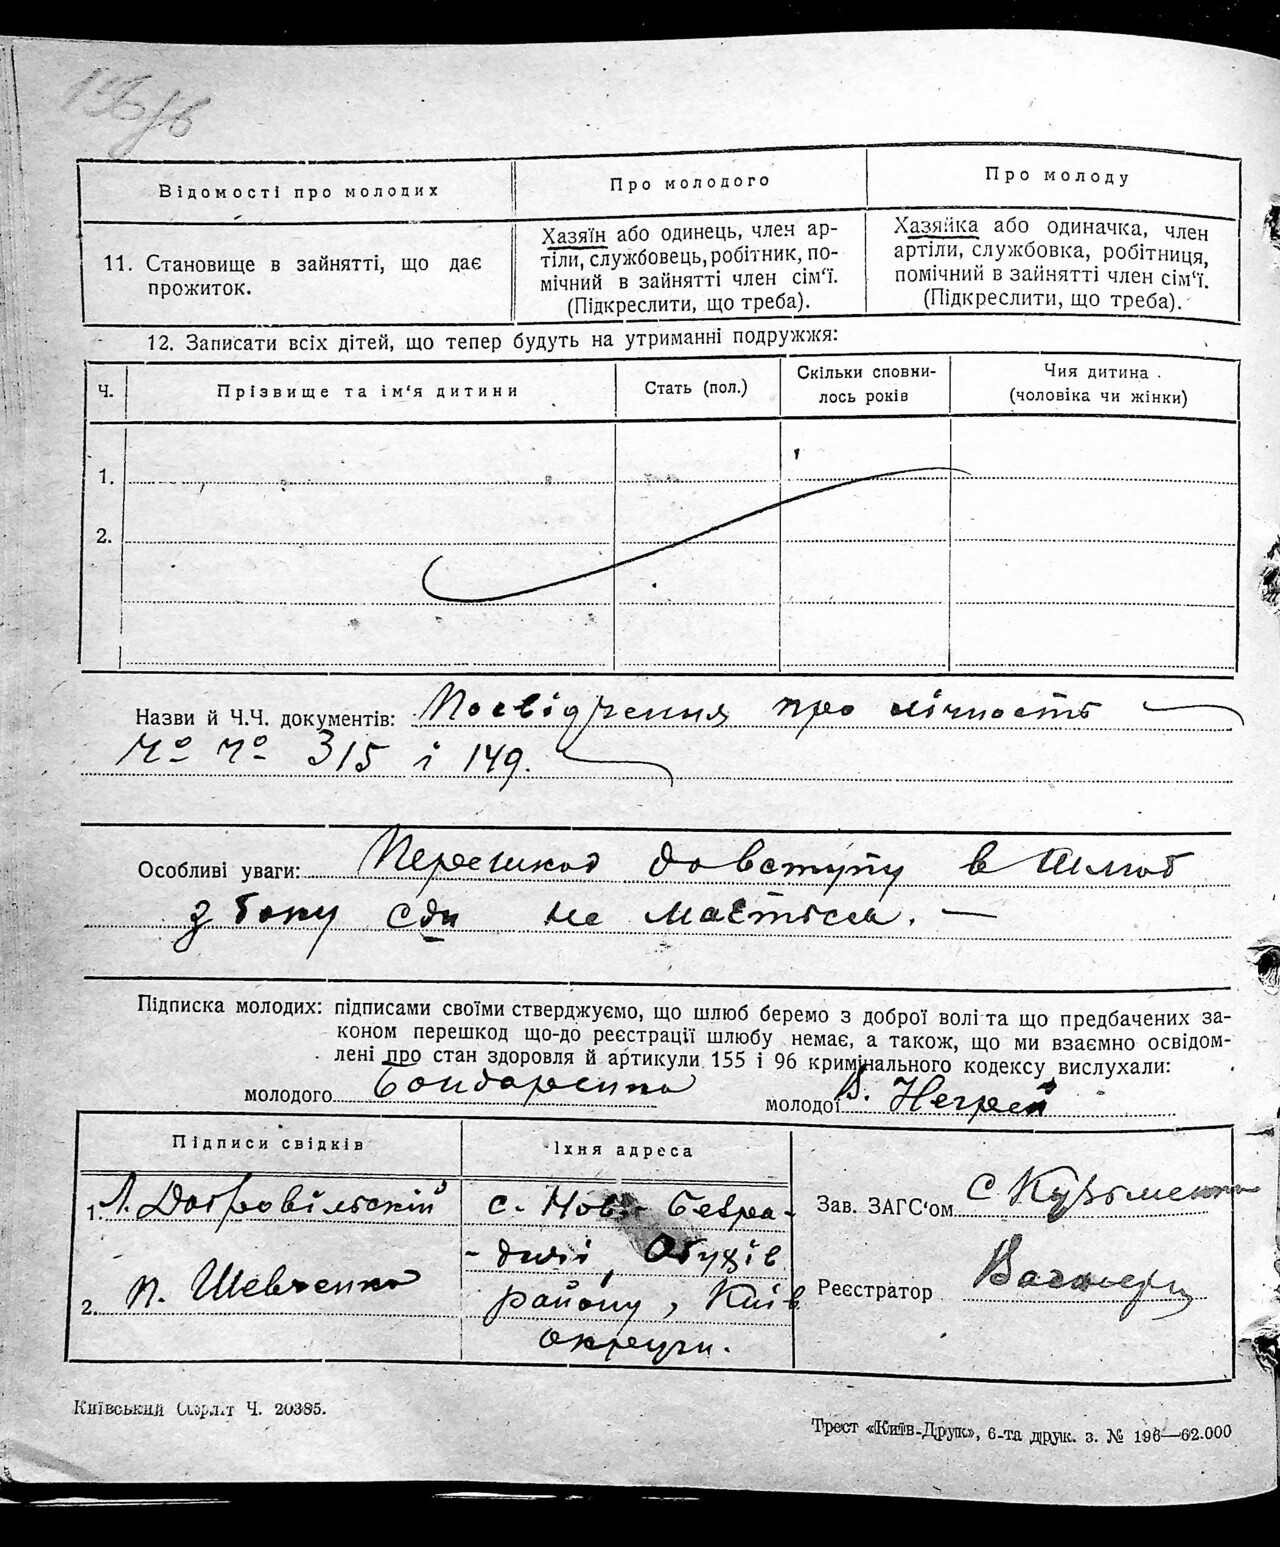 Відомості про молодих
Про молодого
Про молоду
11. Становище в зайнятті, що дає
прожиток.
Хазяїн або одинець, член ар-
тіли, службовець, робітник, по-
мічний в зайнятті член сім'ї.
(Підкреслити, що треба).
Хазяйка або одиначка, член
артіли, службовка, робітниця,
помічний в зайнятті член сім'ї.
(Підкреслити, що треба).
12. Записати всіх дітей, що тепер будуть на утриманні подружжя:
Ч.
Прізвище та ім'я дитини
Стать (пол.)
Скільки сповни-
лось років
Чия дитина
(чоловіка чи жінки)
1.
2.
Назви й Ч.Ч. документів: Посвідчення про лічность
№ № 315 і 149.
Особливі уваги: Перешкод до вступу в шлюб
з боку  не мається. —
Підписка молодих: підписами своїми стверджуємо, що шлюб беремо з доброї волі та що предбачених за-
коном перешкод що-до реєстрації шлюбу немає, а також, що ми взаємно освідом-
лені про стан здоровля й артикули 155 і 96 кримінального кодексу вислухали:
молодого Бондаренко
молодої
Підписи свідків
Їхня адреса
1. Л. Добровільскій
2. П. Шевченко
с. Нові Безра-
- дичі, Обухів
району, Київ
округи.
Зав. ЗАГС'ом С Кузьменко
Реєстратор
Київський Окрліт Ч. 20385.
Трест «Київ-Друк», 6-та друк. з. № 196—62.000